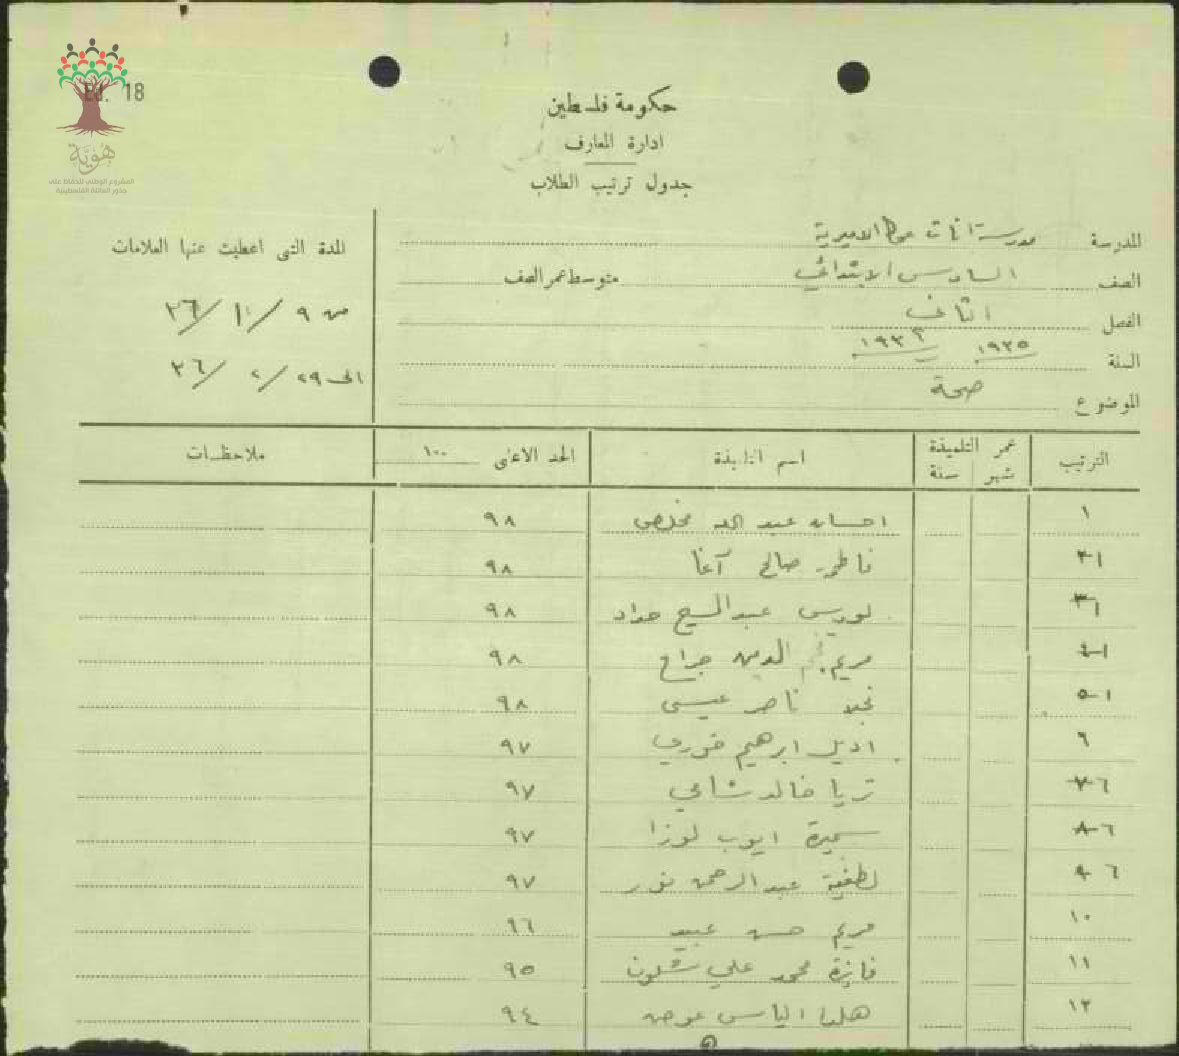 Ed. 18
هُوِيَّة
المشروع الوطني للحفاظ على
جذور العائلة الفلسطينية
حكومة فلسطين
ادارة المعارف
جدول ترتيب الطلاب
المدرسة مدرسة اناث عكا الاميرية
الصف السادس الابتدائي متوسط عمر الصف
الفصل الثاني
السنة ١٩٣٥ ١٩٣٦
الموضوع صحة
المدة التى اعطيت عنها العلامات
من ٩ / ١١ / ٣٦
الى ٢٩ / ٢ / ٣٦
الترتيب عمر التلميذة شهر سنة اسم التلميذة الحد الاعلى ١٠٠ ملاحظات
١ احسان عبد الله مخلص ٩٨
١ ٢ فاطمة صالح آغا ٩٨
١ ٣ لوريس عبد المسيح حداد ٩٨
١ ٤ مريم نجم الدين جراح ٩٨
١ ٥ نجلا ناصر عيسى ٩٨
٦ اديل ابرهيم خوري ٩٧
٦ ٧ ثريا خالد شاهي ٩٧
٦ ٨ سميرة ايوب لوزا ٩٧
٦ ٩ لطفية عبد الرحمن نور ٩٧
١٠ مريم حسن عبيد ٩٦
١١ فايزة محمد علي ٩٥
١٢ هلدا الياس عوض ٩٤